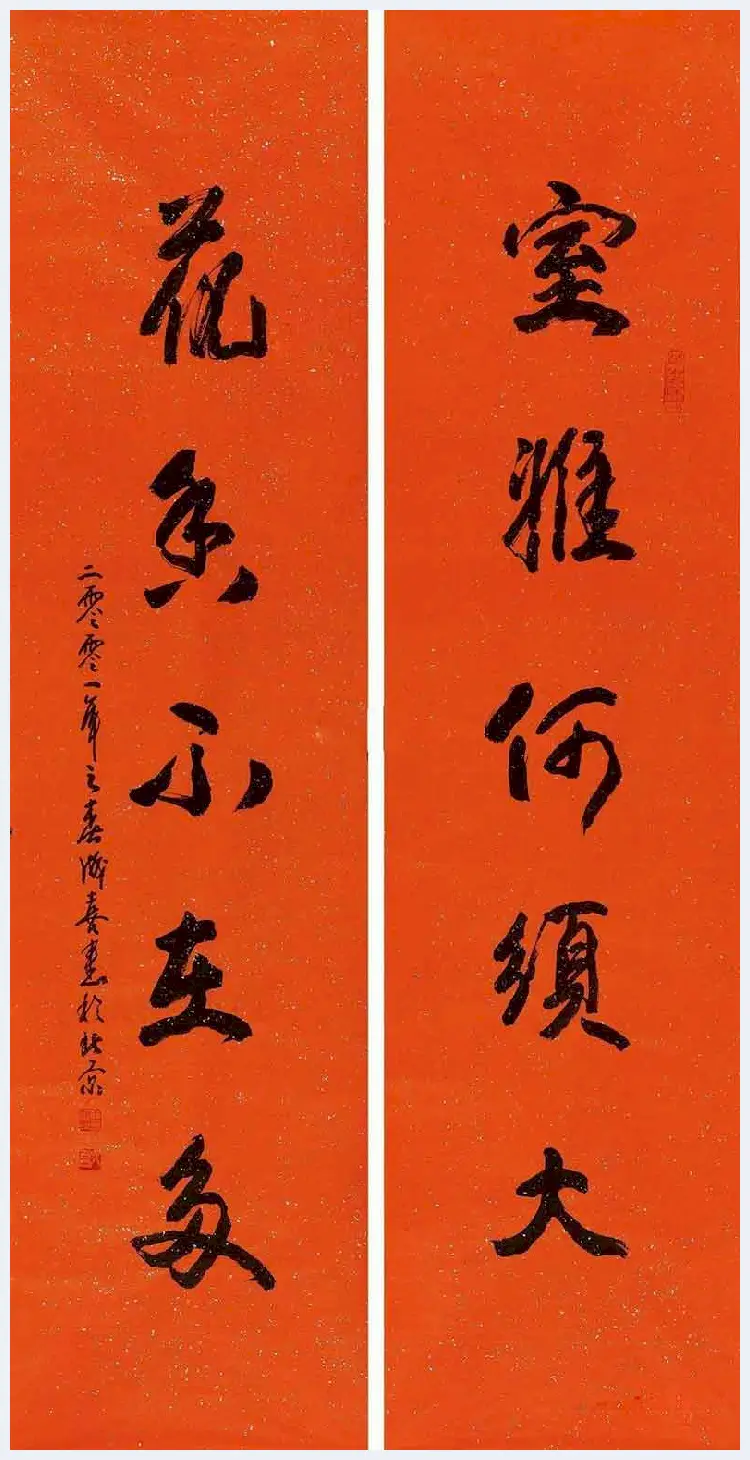 室雅何須大
花香不在多
二零零一年之春成喜書於北京